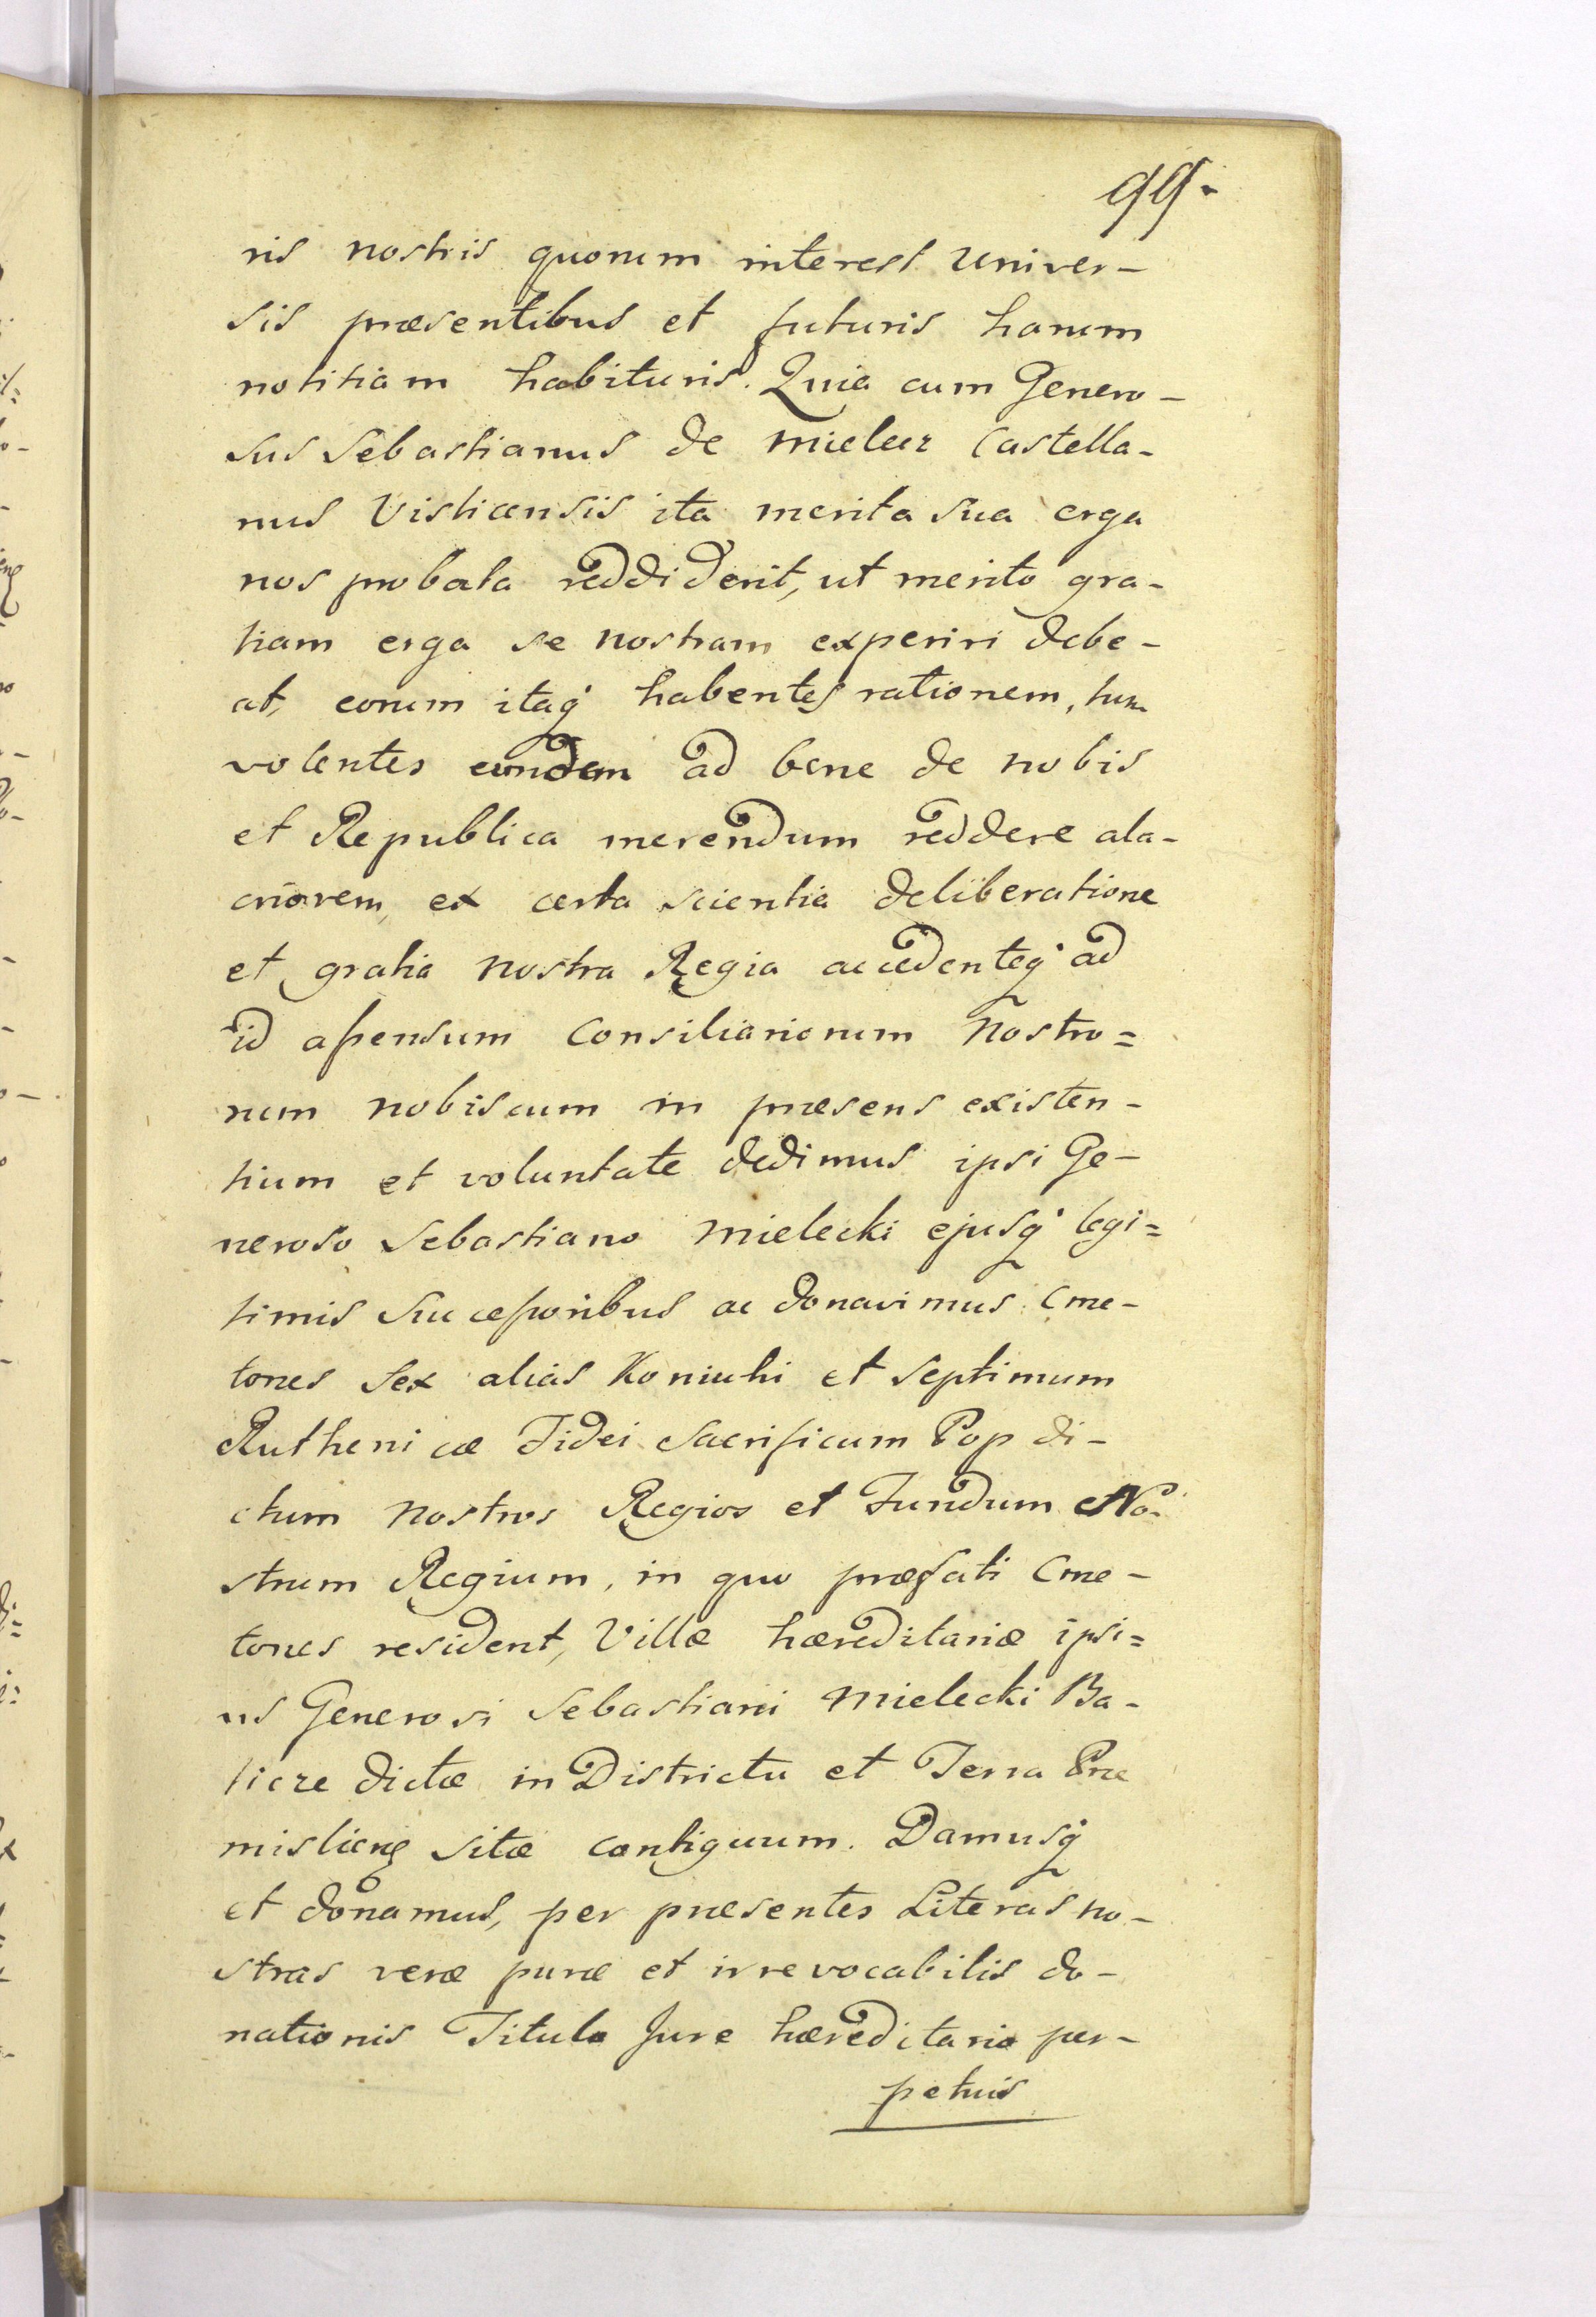 99.
ris nostris quorum interest univer-
sis præsentibus et futuris harum
notitiam habituris. Quia cum Genero-
sus Sebastianus de Mielecz Castella-
nus Visticensis ita merita sua erga
nos probata reddiderit, ut merito gra-
tiam erga se nostram experiri debe-
at, eorum itaq habentes rationem, tum
volentes eundem ad bene de nobis
et Republica merendum reddere ala-
criorem, ex certa scientia deliberatione
et gratia nostra Regia accedenteq ad
id aſsensum Consiliariorum Nostro=
rum nobiscum in præsens existen-
tium et voluntate dedimus ipsi Ge-
neroso Sebastiano Mielecki ejusq legi=
timis Succeſsoribus ac donavimus Cme-
tones Sex alias Koniuhi et Septimum
Ruthenicæ Fidei Sacrificum Pop di-
ctum Nostros Regios et Fundum No-
strum Regium, in quo præfati Cme-
tones resident, Villæ hæreditariæ ipsi=
us Generosi Sebastiani Mielecki Ba-
ticze dictæ in Districtu et Terra Præ
mislieng sitæ contiguum. Damusq
et donamus, per præsentes Literas no-
stras veræ puræ et irrevocabilis do-
nationis Titulo Jure hæreditario per-
petuis